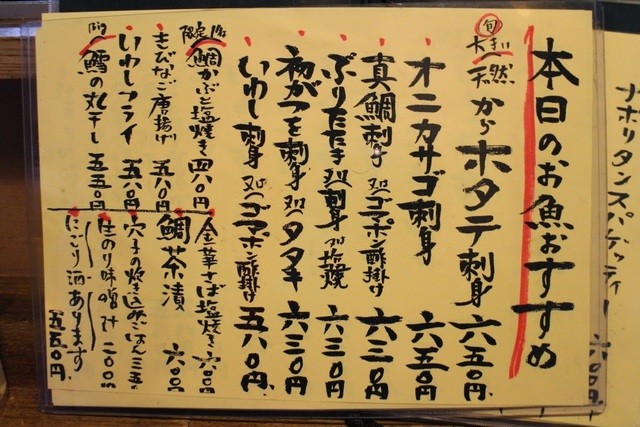 本日のお魚おすすめ
旬
大きい
天然からホタテ刺身 六五〇円
オニカサゴ刺身 六五〇円
真鯛刺身 又はゴマポン酢掛け 六三〇円
ぶりたたき 又は刺身 又は塩焼 六三〇円
初がつを刺身 又はタタキ 六三〇円
いわし刺身 又はゴマポン酢掛け 五八〇円
限定
鯛かぶと塩焼き 四八〇円
きびなご唐揚げ 五八〇円
いわしフライ 五八〇円
Big
鱈の丸干し 五五〇円
金華さば塩焼き 六八〇円
鯛茶漬 六八〇円
穴子の炊き込みごはん 三五〇
生のり味噌汁 二〇〇円
にごり酒あります
五五〇円
ナポリタンスパゲッティ